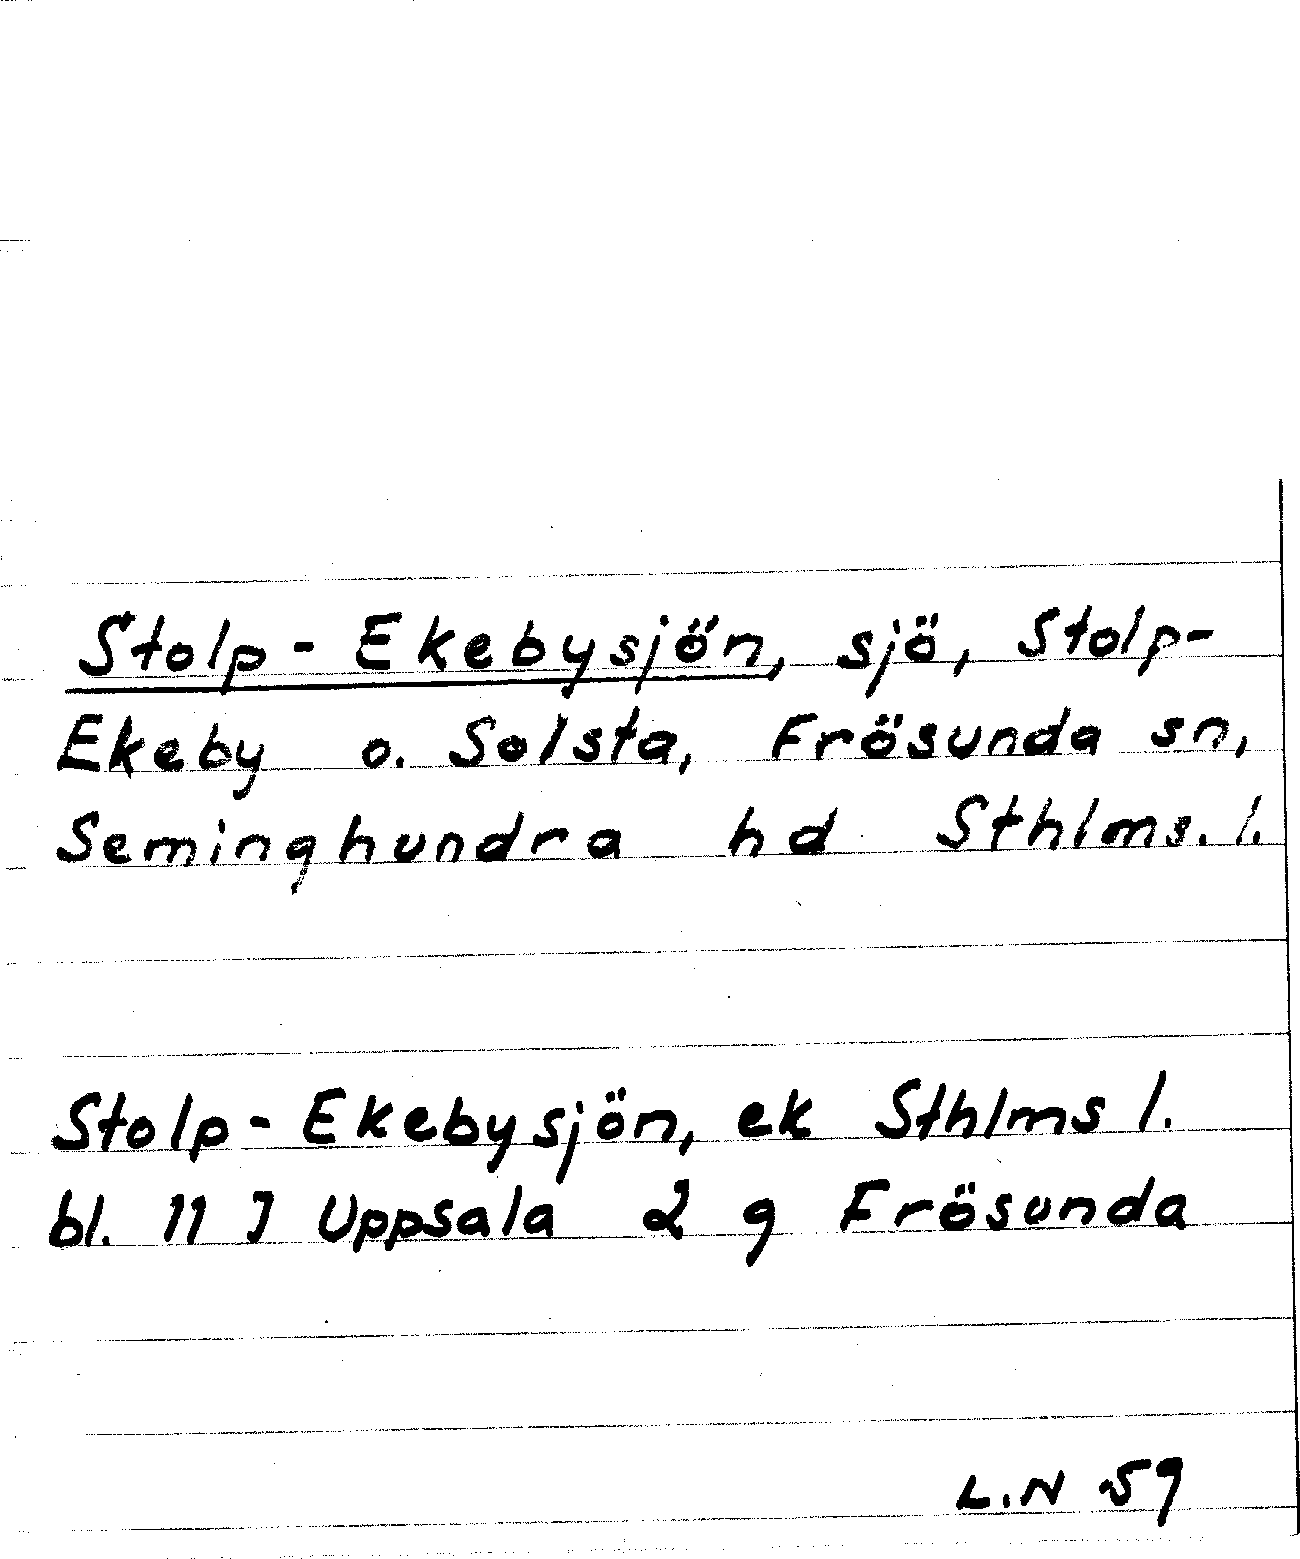 Stolp-Ekebysjön, sjö, Stolp-
Ekeby o. Solsta, Frösunda sn,
Seminghundra hd Sthlms. l.
Stolp-Ekebysjön, ek Sthlms l.
bl. 11 J Uppsala 2 g Frösunda
L.N 59